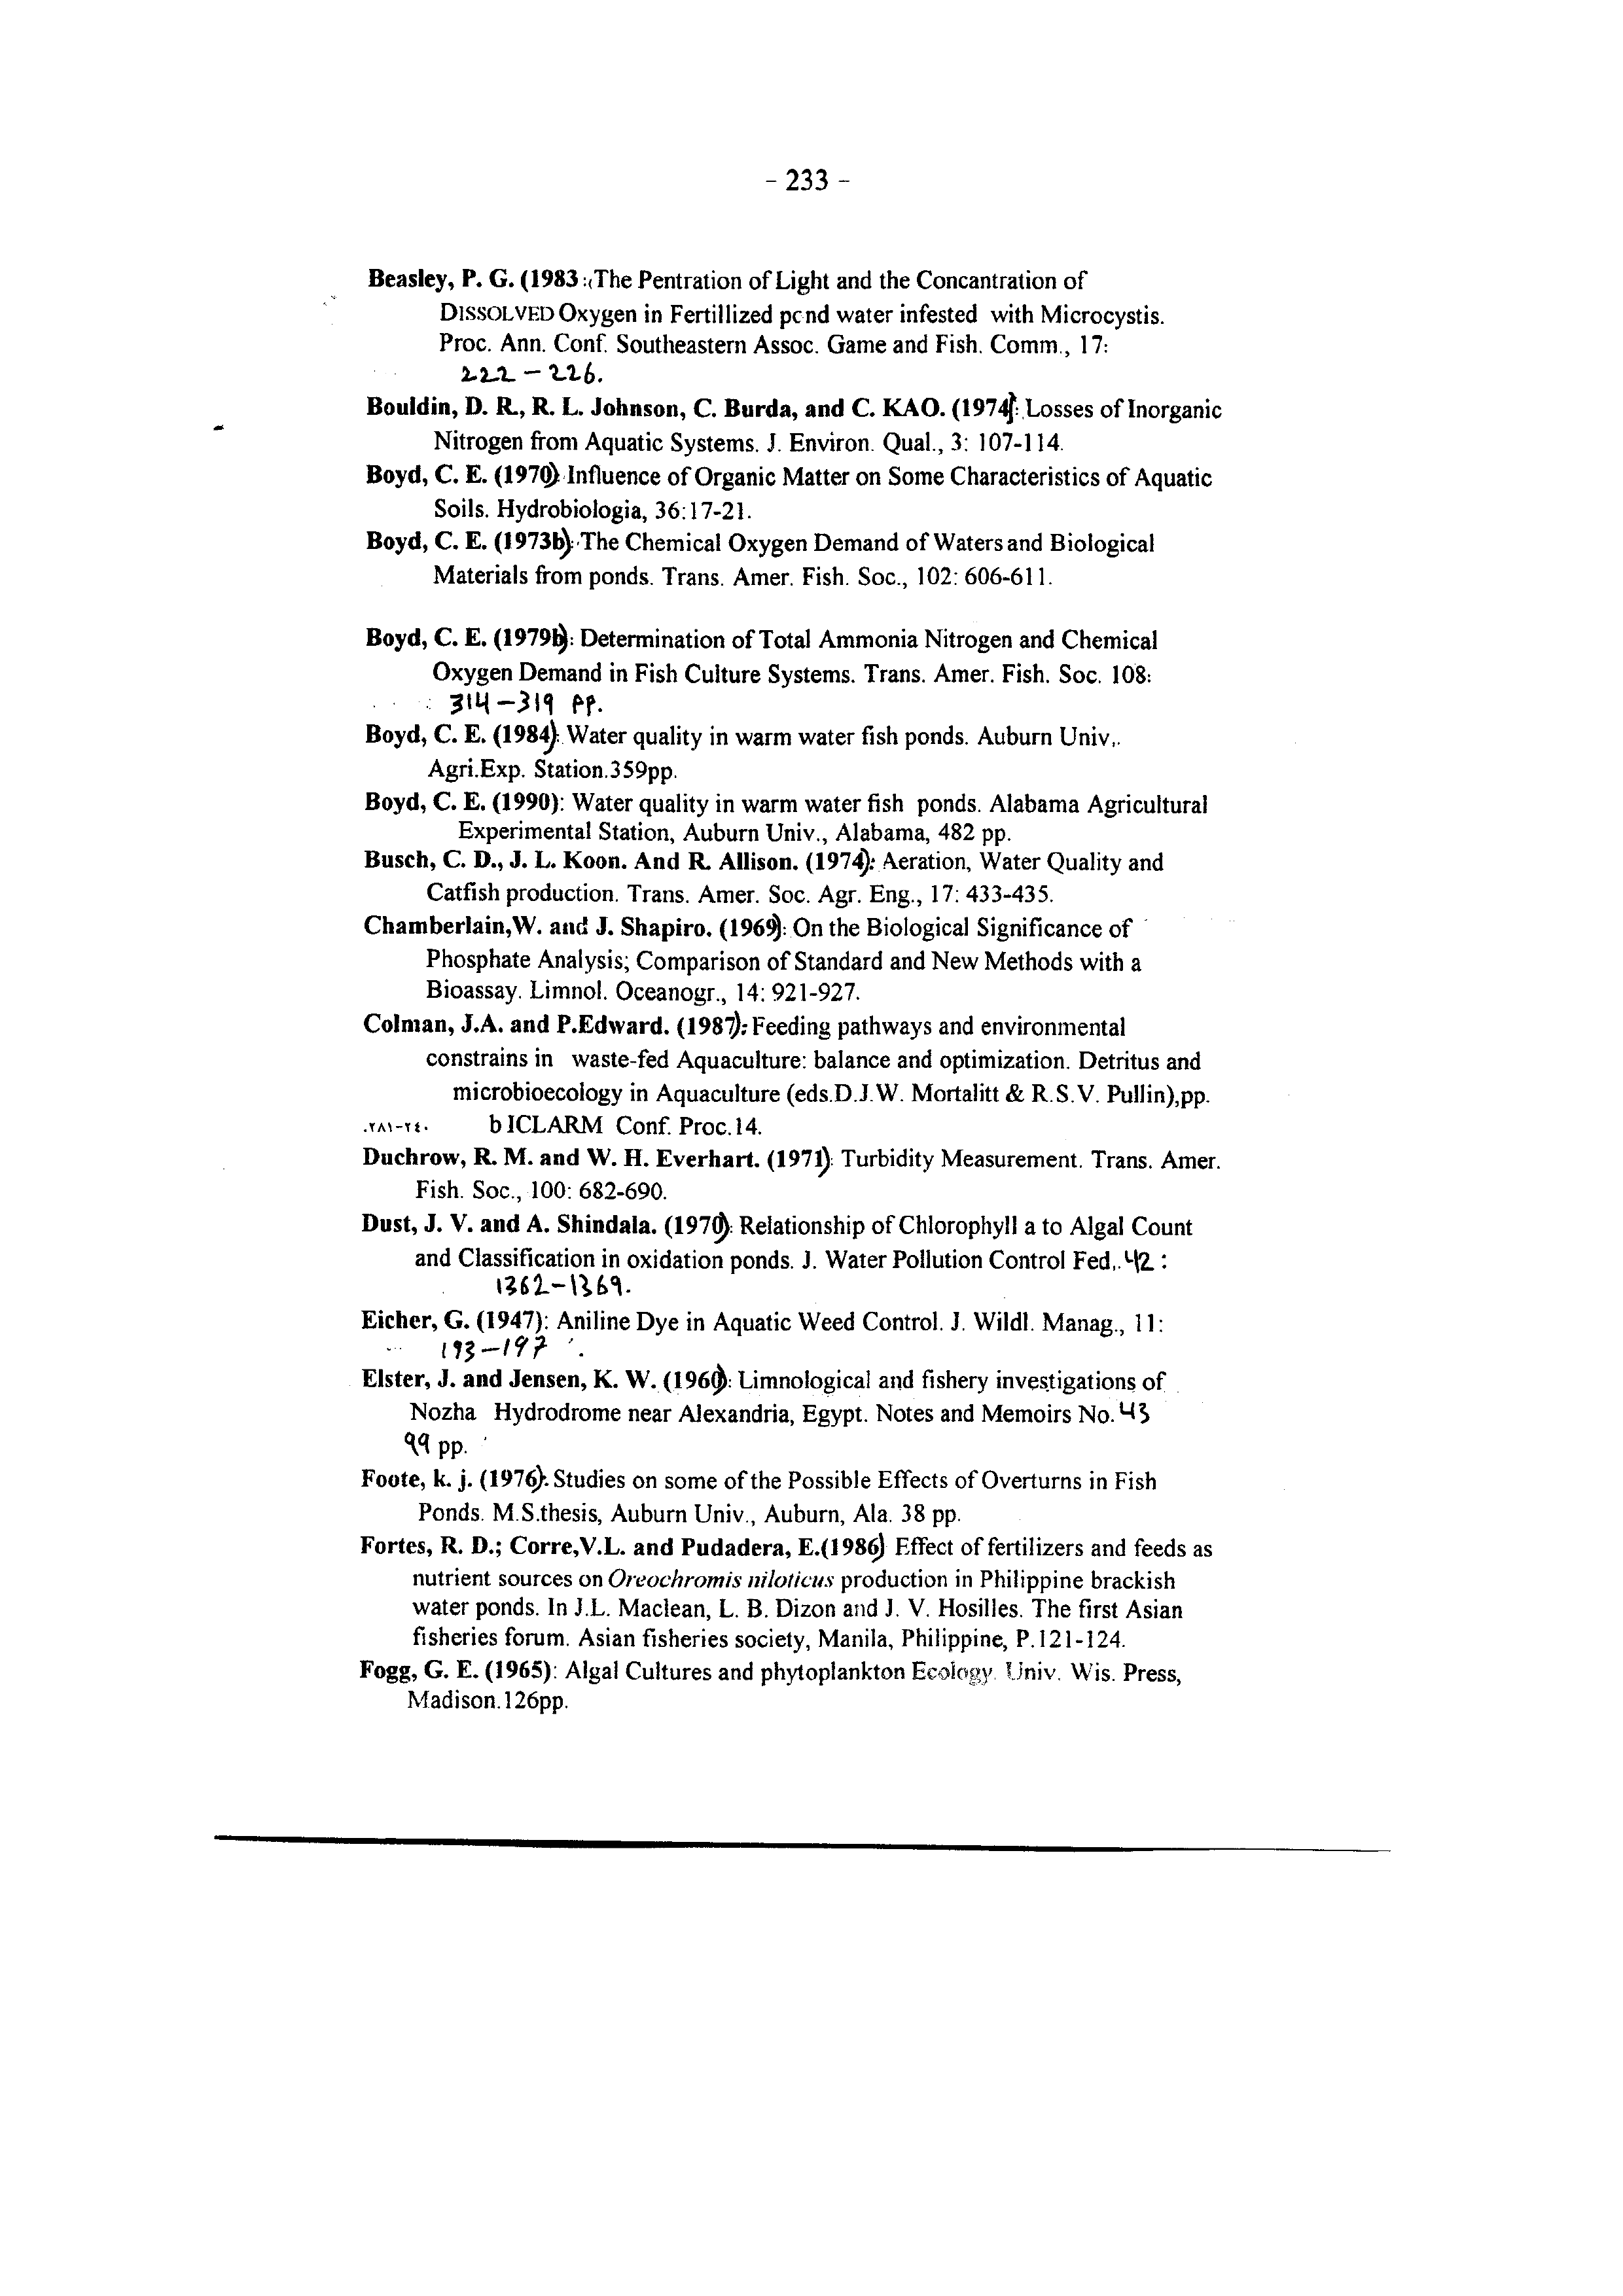 - 233 -
Beasley, P. G. (1983 :(The Pentration of Light and the Concantration of
DISSOLVED Oxygen in Fertillized pond water infested with Microcystis.
Proc. Ann. Conf. Southeastern Assoc. Game and Fish. Comm., 17:
222 - 226.
Bouldin, D. R., R. L. Johnson, C. Burda, and C. KAO. (1974): Losses of Inorganic
Nitrogen from Aquatic Systems. J. Environ. Qual., 3: 107-114.
Boyd, C. E. (1970): Influence of Organic Matter on Some Characteristics of Aquatic
Soils. Hydrobiologia, 36:17-21.
Boyd, C. E. (1973b): The Chemical Oxygen Demand of Waters and Biological
Materials from ponds. Trans. Amer. Fish. Soc., 102: 606-611.
Boyd, C. E. (1979b): Determination of Total Ammonia Nitrogen and Chemical
Oxygen Demand in Fish Culture Systems. Trans. Amer. Fish. Soc. 108:
314-319 PP.
Boyd, C. E. (1984): Water quality in warm water fish ponds. Auburn Univ,.
Agri.Exp. Station.359pp.
Boyd, C. E. (1990): Water quality in warm water fish ponds. Alabama Agricultural
Experimental Station, Auburn Univ., Alabama, 482 pp.
Busch, C. D., J. L. Koon. And R. Allison. (1974): Aeration, Water Quality and
Catfish production. Trans. Amer. Soc. Agr. Eng., 17: 433-435.
Chamberlain,W. and J. Shapiro. (1969): On the Biological Significance of
Phosphate Analysis; Comparison of Standard and New Methods with a
Bioassay. Limnol. Oceanogr., 14: 921-927.
Colman, J.A. and P.Edward. (1987): Feeding pathways and environmental
constrains in waste-fed Aquaculture: balance and optimization. Detritus and
microbioecology in Aquaculture (eds.D.J.W. Mortalitt & R.S.V. Pullin),pp.
.٢٨١-٢٤٠ b ICLARM Conf. Proc.14.
Duchrow, R. M. and W. H. Everhart. (1971): Turbidity Measurement. Trans. Amer.
Fish. Soc., 100: 682-690.
Dust, J. V. and A. Shindala. (1970): Relationship of Chlorophyll a to Algal Count
and Classification in oxidation ponds. J. Water Pollution Control Fed,. 42 :
1362-1369.
Eicher, G. (1947): Aniline Dye in Aquatic Weed Control. J. Wildl. Manag., 11:
193-197.
Elster, J. and Jensen, K. W. (1960): Limnological and fishery investigations of
Nozha Hydrodrome near Alexandria, Egypt. Notes and Memoirs No. 43
99 pp.
Foote, k. j. (1976): Studies on some of the Possible Effects of Overturns in Fish
Ponds. M.S.thesis, Auburn Univ., Auburn, Ala. 38 pp.
Fortes, R. D.; Corre,V.L. and Pudadera, E.(1986) Effect of fertilizers and feeds as
nutrient sources on Oreochromis niloticus production in Philippine brackish
water ponds. In J.L. Maclean, L. B. Dizon and J. V. Hosilles. The first Asian
fisheries forum. Asian fisheries society, Manila, Philippine, P.121-124.
Fogg, G. E. (1965): Algal Cultures and phytoplankton Ecology. Univ. Wis. Press,
Madison.126pp.